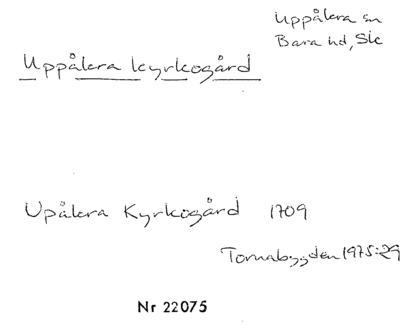 Uppåkra sn
Bara hd, Sk
Uppåkra kyrkogård
Upåkra Kyrkogård 1709
Tornabygden 1975:29
Nr 22075